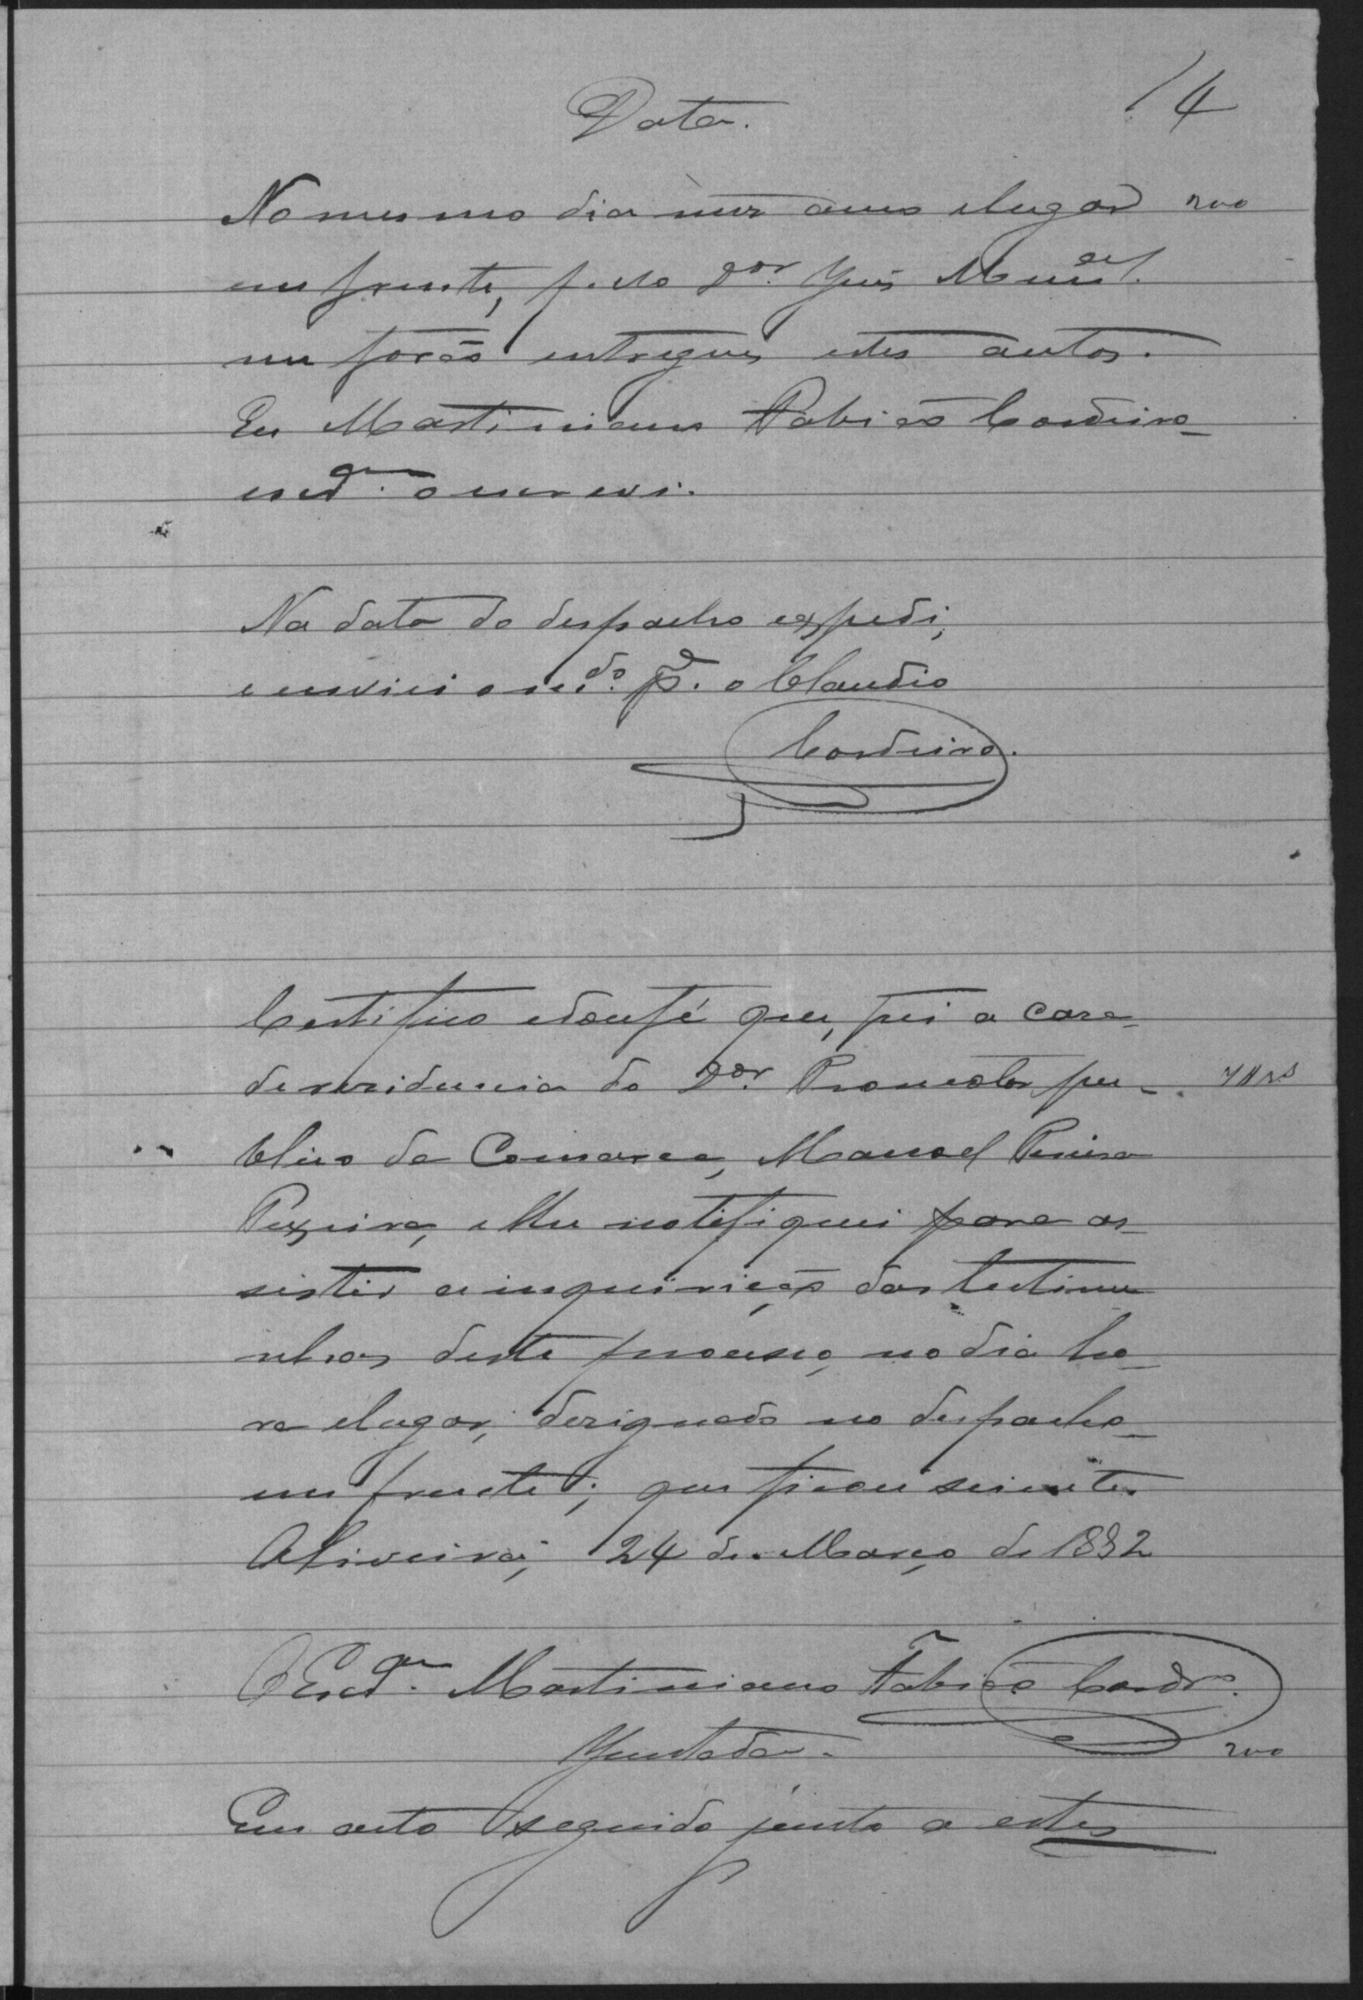 14
Data.
No mesmo dia mez anno e lugar 200
em frente, pelo Dor. Juis Munal.
me forão entregues estes autos.
Eu Martiniano Fabião Cordeiro
escram. o escrevi.
Na data do despacho expedi,
e enviei o mdo. pa. o Claudio
Cordeiro.
Certifico e dou fé que, fui a caza
de rezidencia do Dor. Promotor pu-
blico da Comarca, Manoel Pereira
Texeira, e lhe notifiquei para as-
sistir a inquirição das testimu
nhas deste processo, no dia ho-
ra e lugar, dezignado no despacho
em frente; que ficou sciente.
Oliveira, 24 de Março de 1892
O Escram. Martiniano Fabião Cordro.
Juntada. 200
Em acto seguido junto a estes